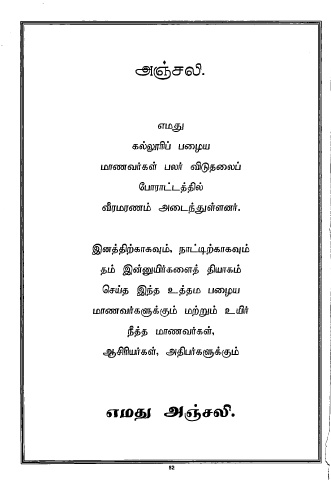 அஞ்சலி.
எமது
கல்லூரிப் பழைய
மாணவர்கள் பலர் விடுதலைப்
போராட்டத்தில்
வீரமரணம் அடைந்துள்ளனர்.
இனத்திற்காகவும், நாட்டிற்காகவும்
தம் இன்னுயிர்களைத் தியாகம்
செய்த இந்த உத்தம பழைய
மாணவர்களுக்கும் மற்றும் உயிர்
நீத்த மாணவர்கள்,
ஆசிரியர்கள், அதிபர்களுக்கும்
எமது அஞ்சலி.
52